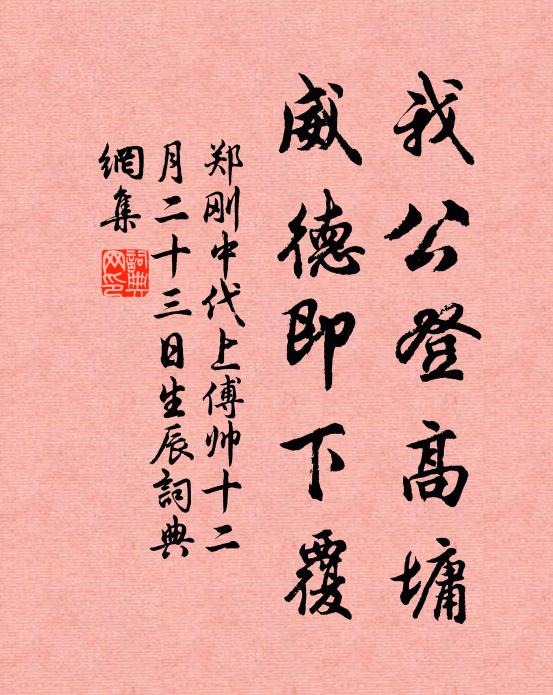 我公登高墉
威德即下覆
郑刚中代上傅帅十二
月二十三日生辰詞典
網集
詞典网印